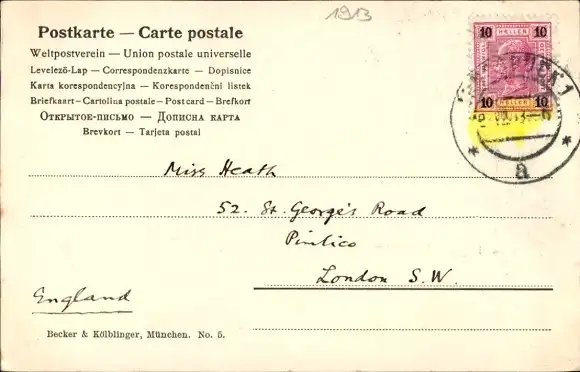 1913
Postkarte — Carte postale
Weltpostverein — Union postale universelle
Levelező-Lap — Correspondenzkarte — Dopisnice
Karta korespondencyjna — Korespondenční listek
Briefkaart — Cartolina postale — Post card — Brefkort
Открытое-письмо — Дописна карта
Brevkort — Tarjeta postal
10 HELLER 10
10 HELLER 10
a
Miss Heath
52. St. George's Road
Pimlico
London S.W.
England
Becker & Kölblinger, München. No. 5.